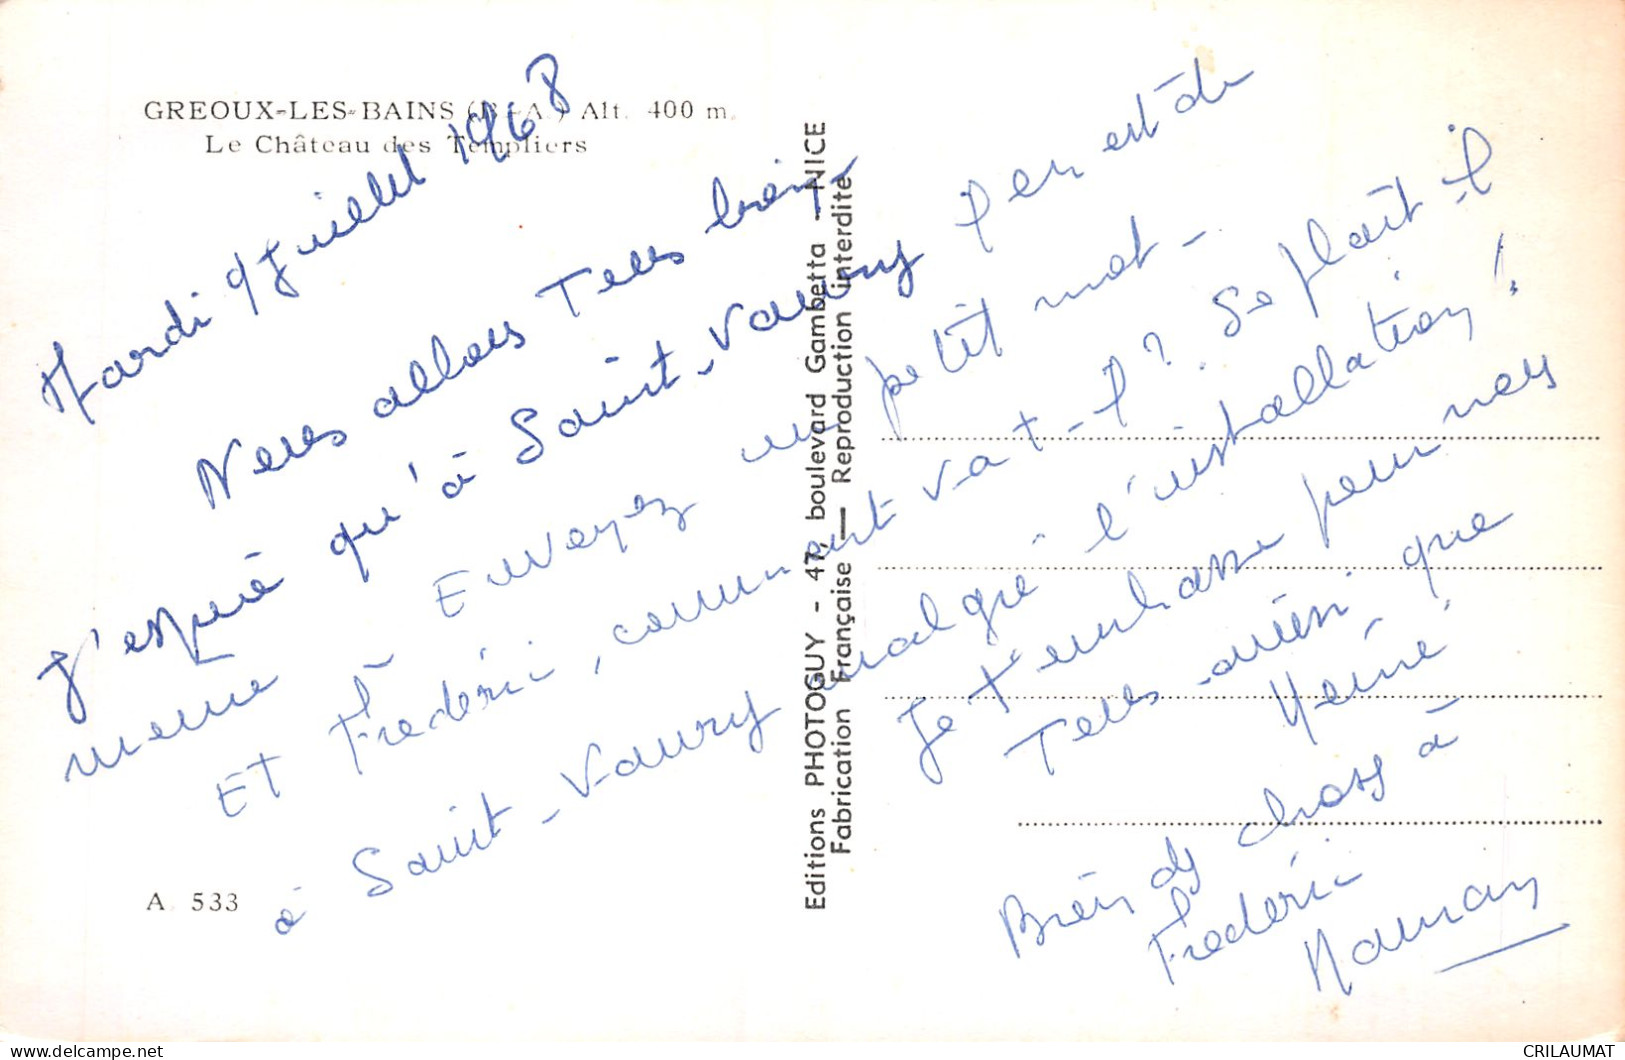 GREOUX-LES-BAINS (B.-A.) Alt. 400 m.
Le Château des Templiers
Mardi 9 Juillet 1968
Nous allons Tous bien,
J'espère qu'à Saint-Vaury l'on est de
même Envoyez un petit mot -
Et Frédéric, comment va t-il ? Se plaît-il
à Saint-Vaury malgré l'installation !
Je t'embrasse pour nous
Tous ainsi que
Mémé
Bien des choses à
Frédéric
Maman
A. 533
Editions PHOTOGUY - 47, boulevard Gambetta - NICE
Fabrication Française — Reproduction interdite
CRILAUMAT